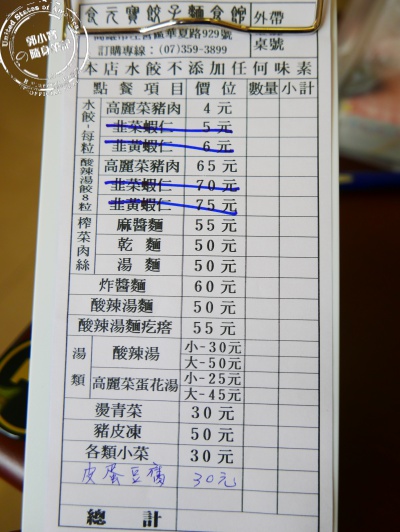 食元寶餃子麵食館 外帶
高雄市左營區華夏路929號
訂購專線：(07)359-3899 桌號
本店水餃不添加任何味素
點餐項目 價位 數量 小計
水餃-每粒
高麗菜豬肉 4元
韭菜蝦仁 5元
韭黃蝦仁 6元
酸辣湯餃8粒
高麗菜豬肉 65元
韭菜蝦仁 70元
韭黃蝦仁 75元
榨菜肉絲
麻醬麵 55元
乾麵 50元
湯麵 50元
炸醬麵 60元
酸辣湯麵 50元
酸辣湯麵疙瘩 55元
湯類
酸辣湯 小-30元
大-50元
高麗菜蛋花湯 小-25元
大-45元
燙青菜 30元
豬皮凍 50元
各類小菜 30元
皮蛋豆腐 30元
總計